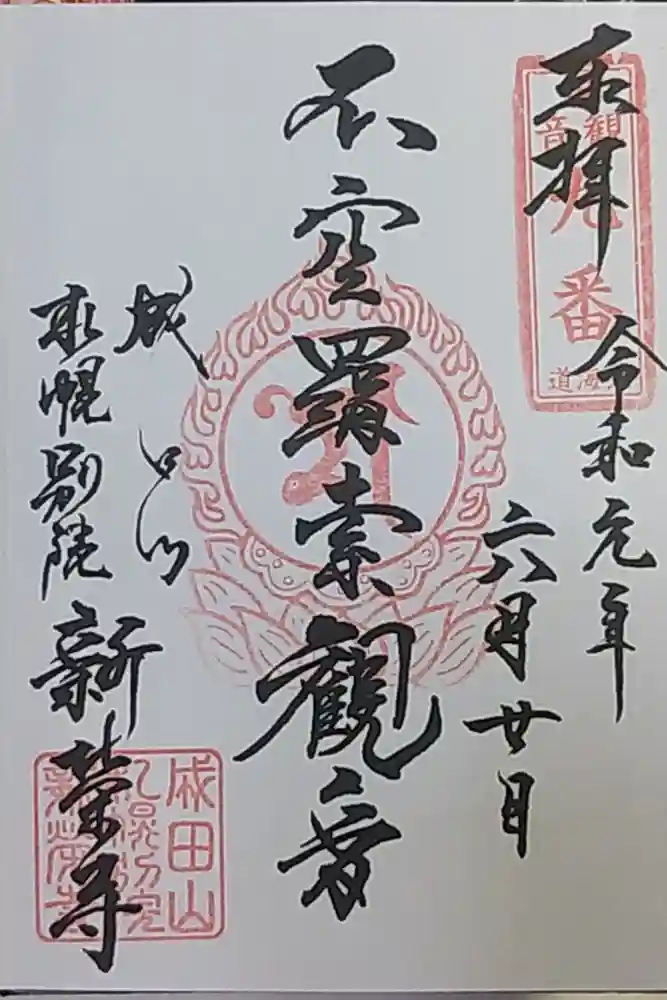 奉拝
令和元年
六月廿日
不空羂索観音
成田山
札幌別院
新栄寺
観音
九番
北海道
成田山